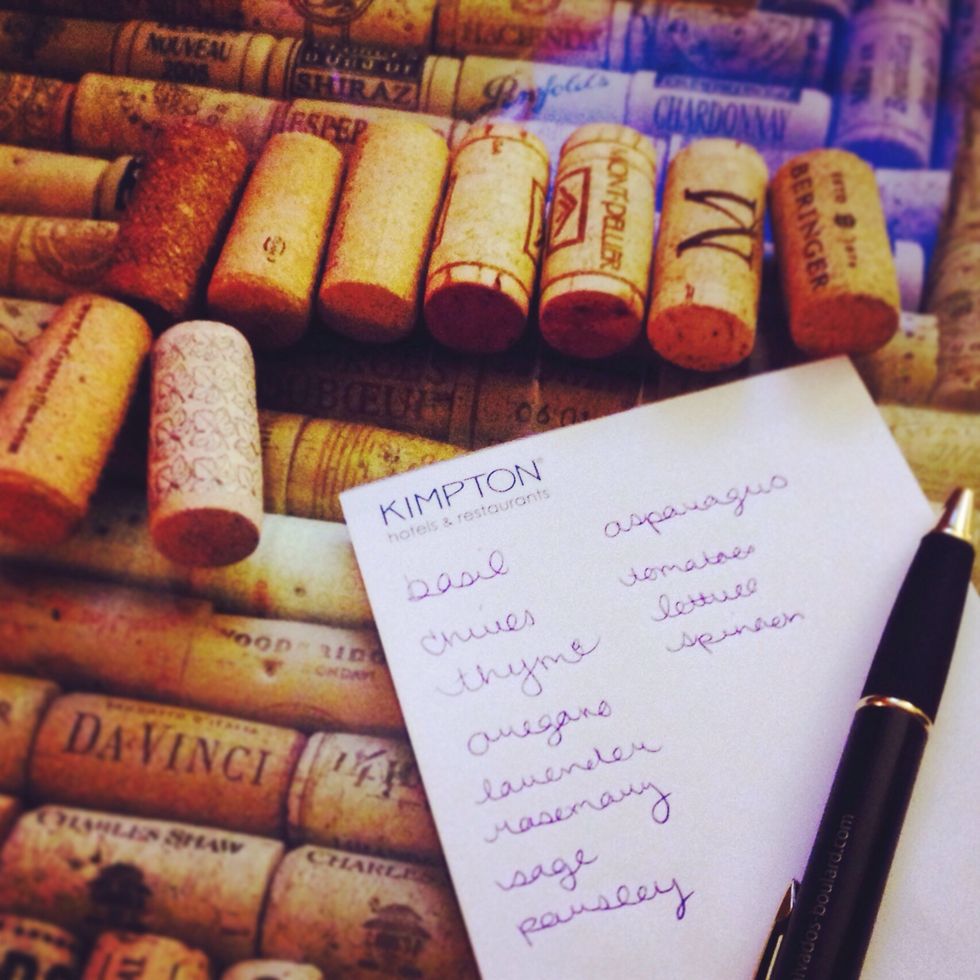 NOUVEAU
2005
HACIENDA
SHIRAZ
Penfolds
CHARDONNAY
ESPER
MONTPELLIER
M
BERINGER
DUBŒUF
06.01
WOOD BRIDG
DAVINCI
CHARLES SHAW
CHARLES
KIMPTON
hotels & restaurants
basil
chives
thyme
oregano
lavender
rosemary
sage
parsley
asparagus
tomatoes
lettuce
spinach
vados-boulard.com